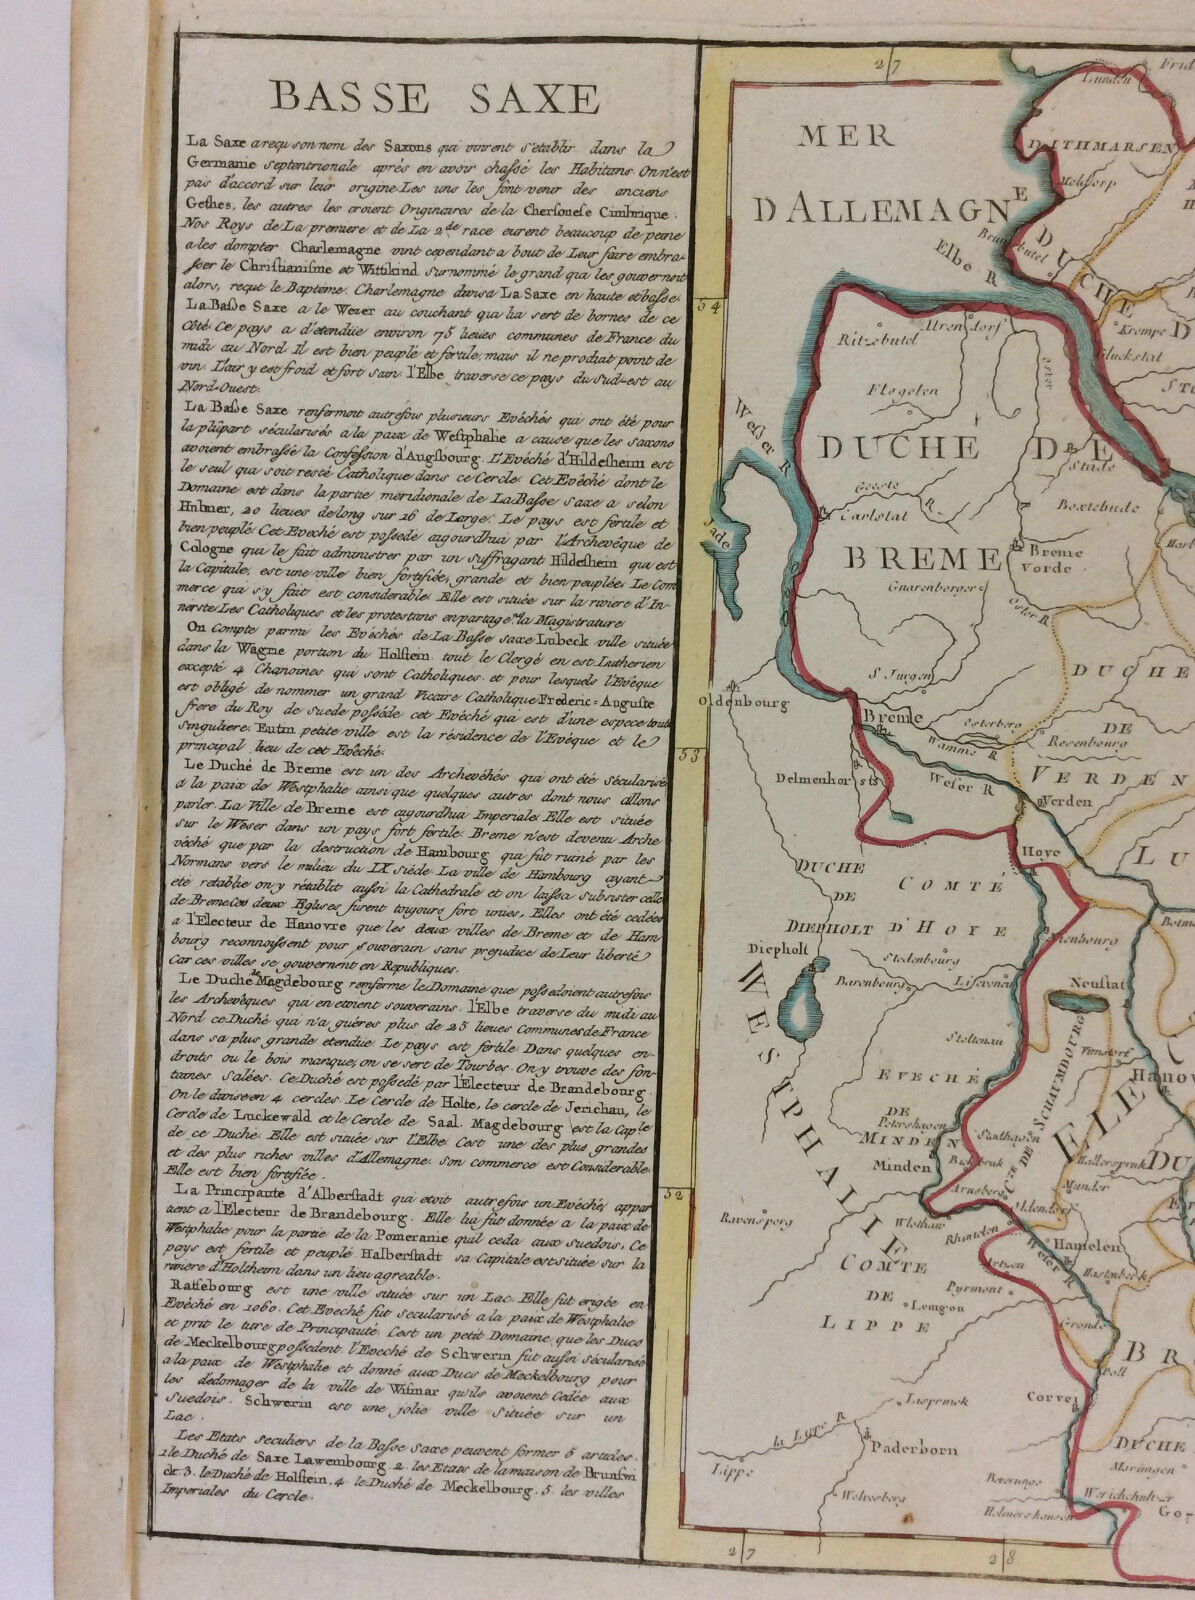 BASSE SAXE
La Saxe a reçu son nom des Saxons qui vinrent s'etablir dans la
Germanie septentrionale aprés en avoir chassé les Habitans. On n'est
pas d'accord sur leur origine. Les uns les font venir des anciens
Gethes, les autres les croient Originaires de la Chersonese Cimbrique.
Nos Roys de La premiere et de La 2de race eurent beaucoup de peine
a les dompter Charlemagne vint cependant a bout de Leur faire embra-
sser le Christianisme et Wittikind surnommé le grand qui les gouvernoit
alors, reçut le Baptême. Charlemagne divisa La Saxe en haute et basse.
La Basse Saxe a le Weser au couchant qui lui sert de bornes de ce
Côté. Ce pays a d'etendüe environ 75 lieues communes de France du
midi au Nord. Il est bien peuplé et fertile, mais il ne produit point de
vin. L'air y est froid et fort sain. l'Elbe traverse ce pays du Sud-est au
Nord-Ouest.
La Basse Saxe renfermoit autrefois plusieurs Evéchés qui ont été pour
la plûpart sécularisés a la paix de Westphalie a cause que les saxons
avoient embrassé la Confession d'Augsbourg. L'Evéché d'Hildesheim est
le seul qui soit resté Catholique dans ce Cercle. Cet Evêché dont le
Domaine est dans la partie méridionale de La Basse Saxe a selon
Hubner, 20 lieues de long sur 16 de Large. Le pays est fertile et
bien peuplé. Cet Eveché est possedé aujourdhui par l'Archevêque de
Cologne qui le fait administrer par un suffragant Hildesheim qui est
la Capitale, est une ville bien fortifiée, grande et bien peuplée. Le Com
merce qui s'y fait est considerable. Elle est située sur la riviere d'In-
nerste. Les Catholiques et les protestans en partagent la Magistrature
On Compte parmi les Evéchés de La Basse saxe Lubeck ville située
dans la Wagrie portion du Holstein. tout le Clergé en est Lutherien
excepté 4 Chanoines qui sont Catholiques. et pour lesquels l'Evêque
est obligé de nommer un grand Vicaire Catholique Frederic-Auguste
frere du Roy de suede posséde cet Evéché qui est d'une espece toute
singuliere. Eutin petite ville est la résidence de l'Evêque et le
principal lieu de cet Evêché.
Le Duché de Breme est un des Archevéhés qui ont été sécularisé
a la paix de Westphalie ainsi que quelques autres dont nous allons
parler. La Ville de Breme est aujourdhui Imperiale. Elle est située
sur le Weser dans un pays fort fertile. Breme n'est devenu Arche
véché que par la destruction de Hambourg qui fut ruiné par les
Normans vers le milieu du IX siécle. La ville de Hambourg ayant
eté retablie on y rétablit aussi la Cathedrale et on laissa subsister celle
de Breme. Ces deux Eglises furent toujours fort unies, Elles ont été cedées
a l'Electeur de Hanovre que les deux villes de Breme et de Ham
bourg reconnoissent pour souverain sans prejudice de Leur liberté
Car ces villes se gouvernent en Republiques.
Le Duché de Magdebourg renferme le Domaine que possedoient autrefois
les Archevêques qui en etoient souverains. l'Elbe traverse du midi au
Nord ce Duché qui n'a guéres plus de 25 lieues Communes de France
dans sa plus grande etendüe. Le pays est fertile. Dans quelques en-
droits ou le bois manque, on se sert de Tourbes. On y trouve des fon-
taines salées. Ce Duché est possedé par l'Electeur de Brandebourg.
On le divise en 4 cercles. Le Cercle de Holte, le cercle de Jerichau, le
Cercle de Luckewald et le Cercle de Saal. Magdebourg est la Caple
de ce Duché. Elle est située sur l'Elbe. C'est une des plus grandes
et des plus riches villes d'Allemagne. Son commerce est Considerable.
Elle est bien fortifiée.
La Principaute d'Alberstadt qui etoit autrefois un Evéché, appar
tient a l'Electeur de Brandebourg. Elle lui fut donnée a la paix de
Westphalie pour la partie de la Pomeranie quil ceda aux suedois. Ce
pays est fertile et peuplé Halberstadt sa Capitale est située sur la
riviere d'Holtheim dans un lieu agreable.
Ratsebourg est une ville située sur un Lac. Elle fut erigée en
Evéché en 1060. Cet Eveché fut secularisé a la paix de Westphalie
et prit le titre de Principauté. C'est un petit Domaine, que les Ducs
de Meckelbourg possedent. l'Eveché de Schwerin fut aussi sécularisé
a la paix de Westphalie et donné aux Ducs de Meckelbourg pour
les dédomager de la ville de Wismar qu'ils avoient Cedée aux
Suedois. Schwerin est une jolie ville située sur un
Lac.
Les Etats seculiers de la Basse saxe peuvent former 5 articles.
1. le Duché de Saxe Lawembourg 2. les Etats de la maison de Brunswi
ck. 3. le Duché de Holstein, 4. le Duché de Meckelbourg. 5. les villes
Imperiales du Cercle.
27
MER
D'ALLEMAGNE
Lunden
DITHMARSEN
Meldorp
Elbe R
DUCHÉ
54
Krempe
Gluckstat
Ritzebutel
Flogelen
Oster
Weser R
DUCHÉ DE
Stade
Geeste R.
Carlstat
Boxtehude
Jade
BREME
Breme
Vorde
Gnarenborger
Oster R
DUCHE
S. Jurgen
Oldenbourg
Breme
Osterberg
DE
Rotenbourg
Wamme R
53
VERDEN
Delmenhorst
Weser R
Verden
Hoye
DUCHE
COMTÉ
LU
DE
DIEPHOLT
D'HOYE
Nienbourg
Diepholt
Barenbourg
Neustat
WESTPHALIE
Stoltenau
Hanov
EVECHÉ
Cté DE SCHAUMBOURG
DE
Petershagen
MINDEN
Stadhagen
ELEC
DU
Minden
Arnsberg
Munder
52
Ravensperg
Oldendorf
Rhintelen
Hamelen
Weser R
Hastenbeck
COMTE
Pyrmont
DE
Lemgou
LIPPE
Gronde
BR
Poll
Corvei
la Lippe R
Paderborn
DUCHE
Lippe
Holmershausen
27
28